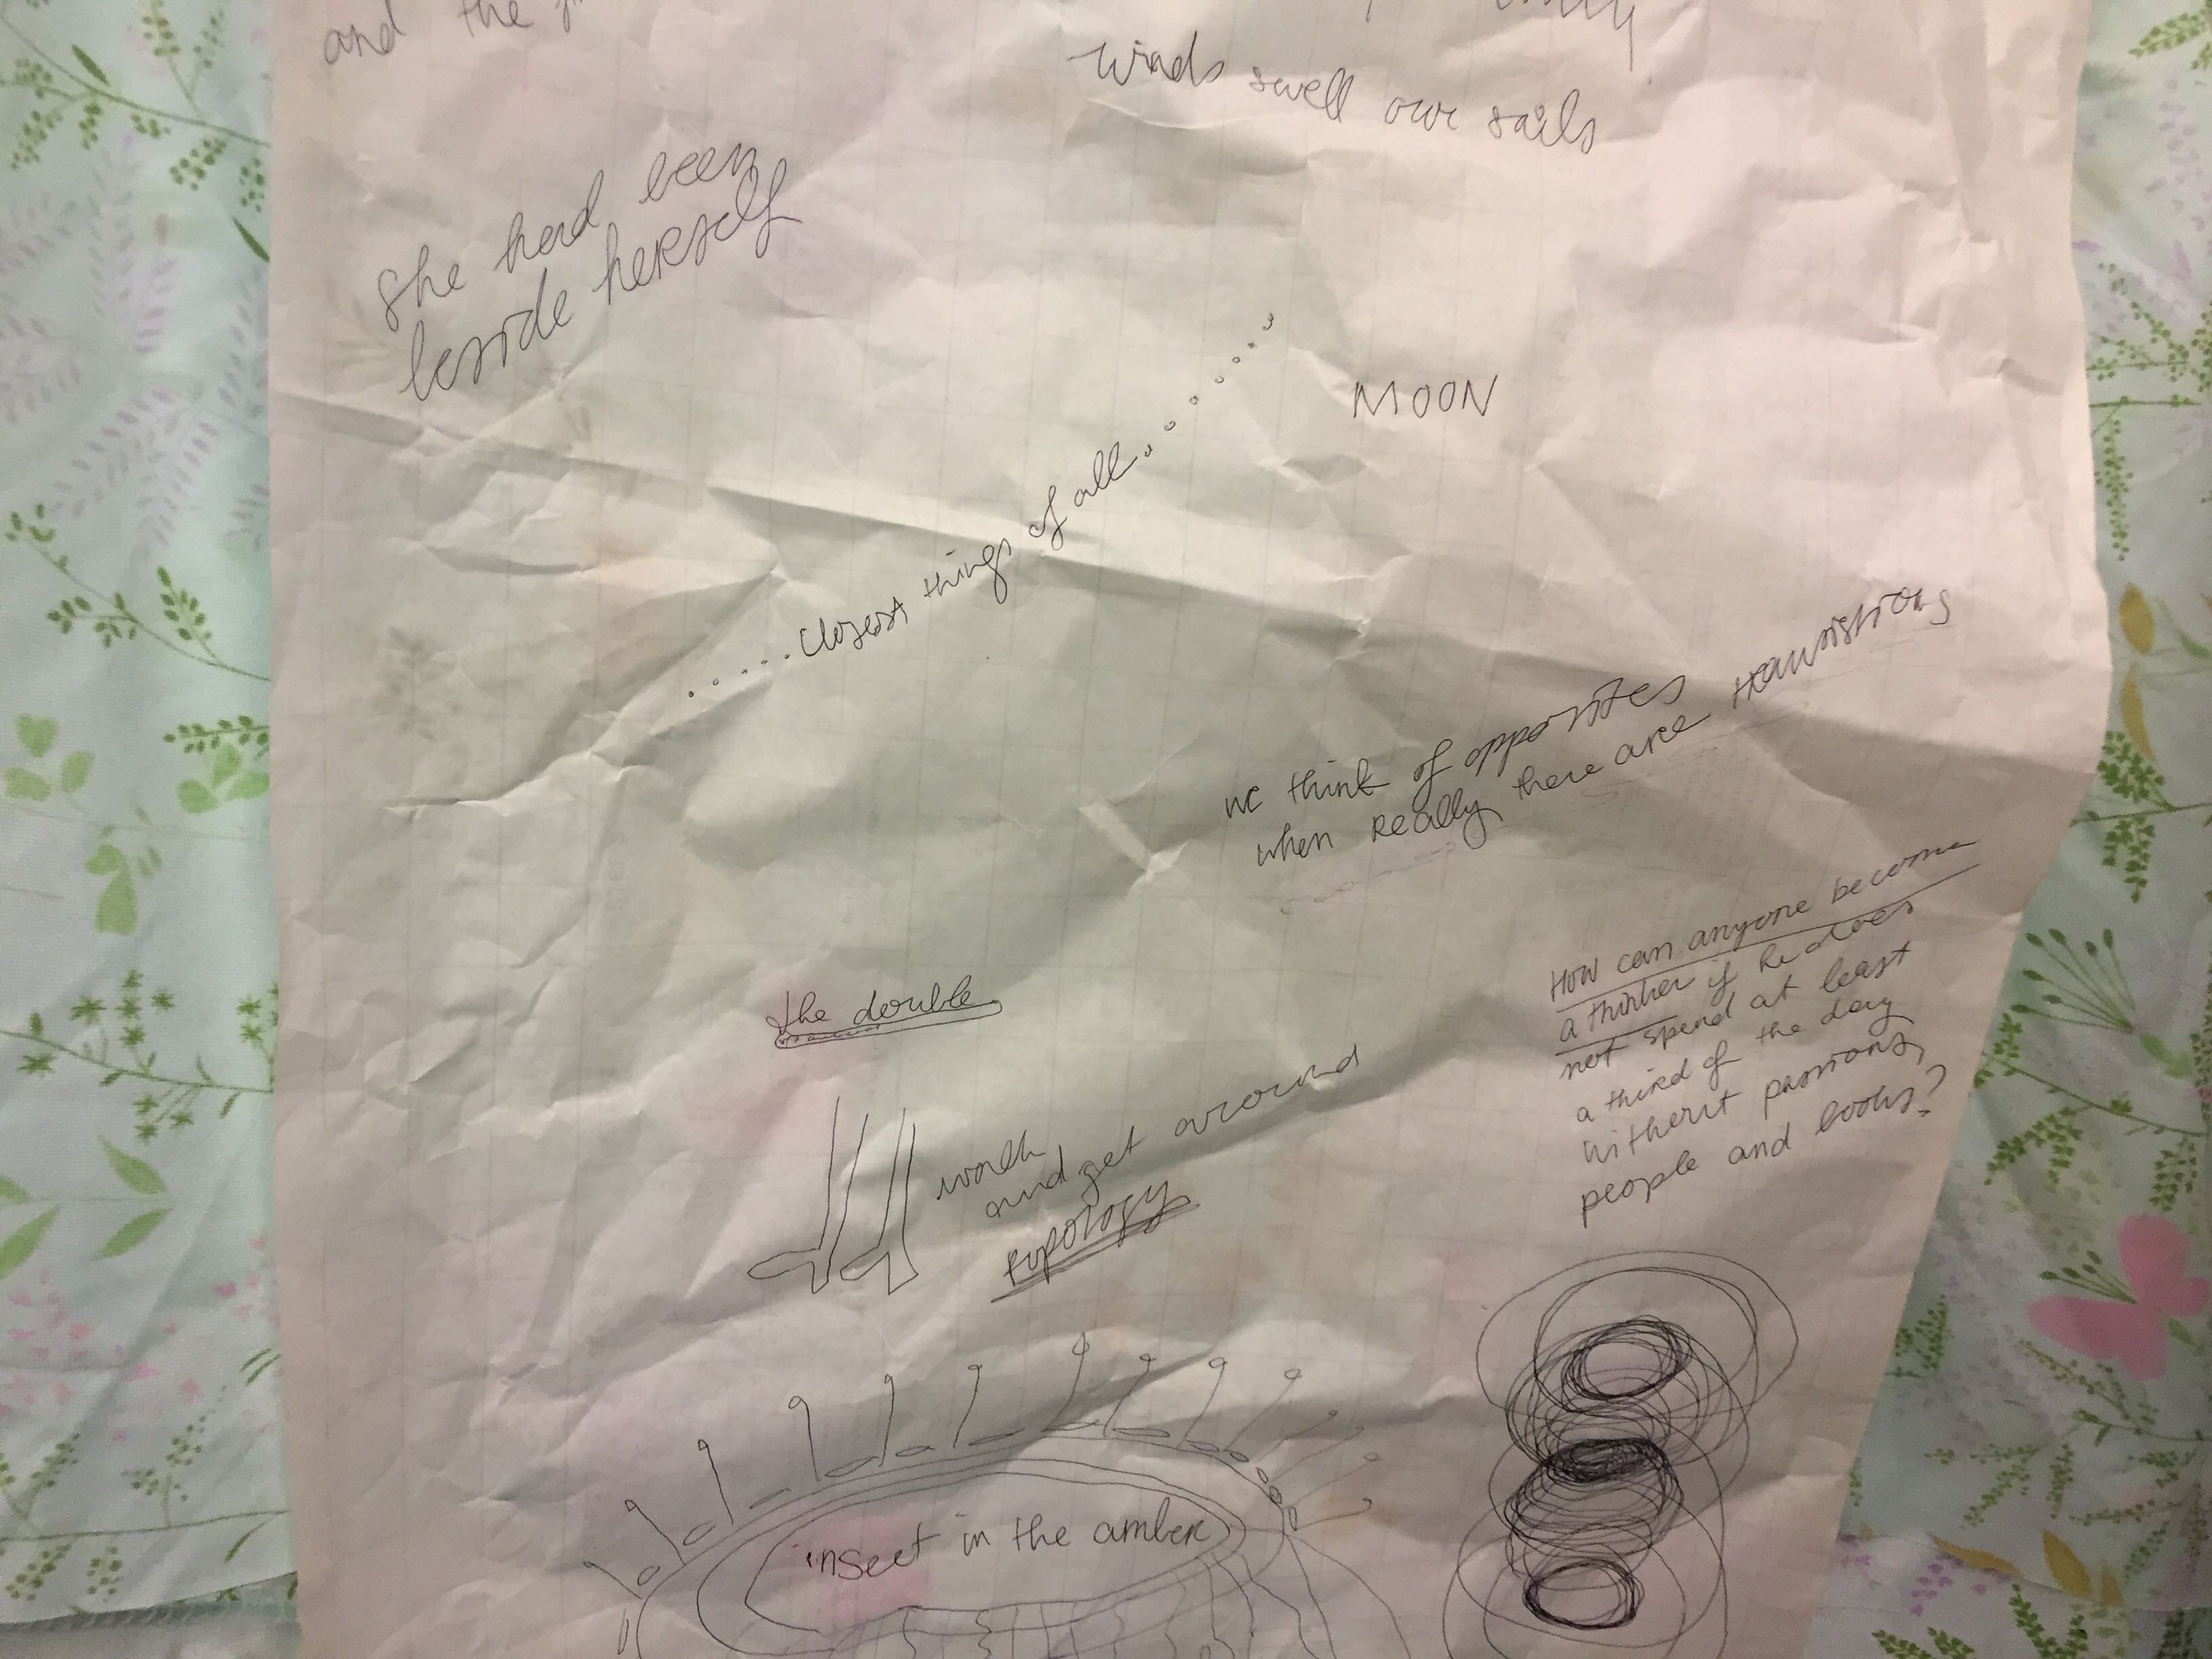 and the
winds swell our sails
She had been
beside herself
MOON
.....closest things of all.........
we think of opposites
when really there are transistions
How can anyone become
a thinker if he does
not spend at least
a third of the day
without passions,
people and books?
the double
walk
and get around
topology
insect in the amber